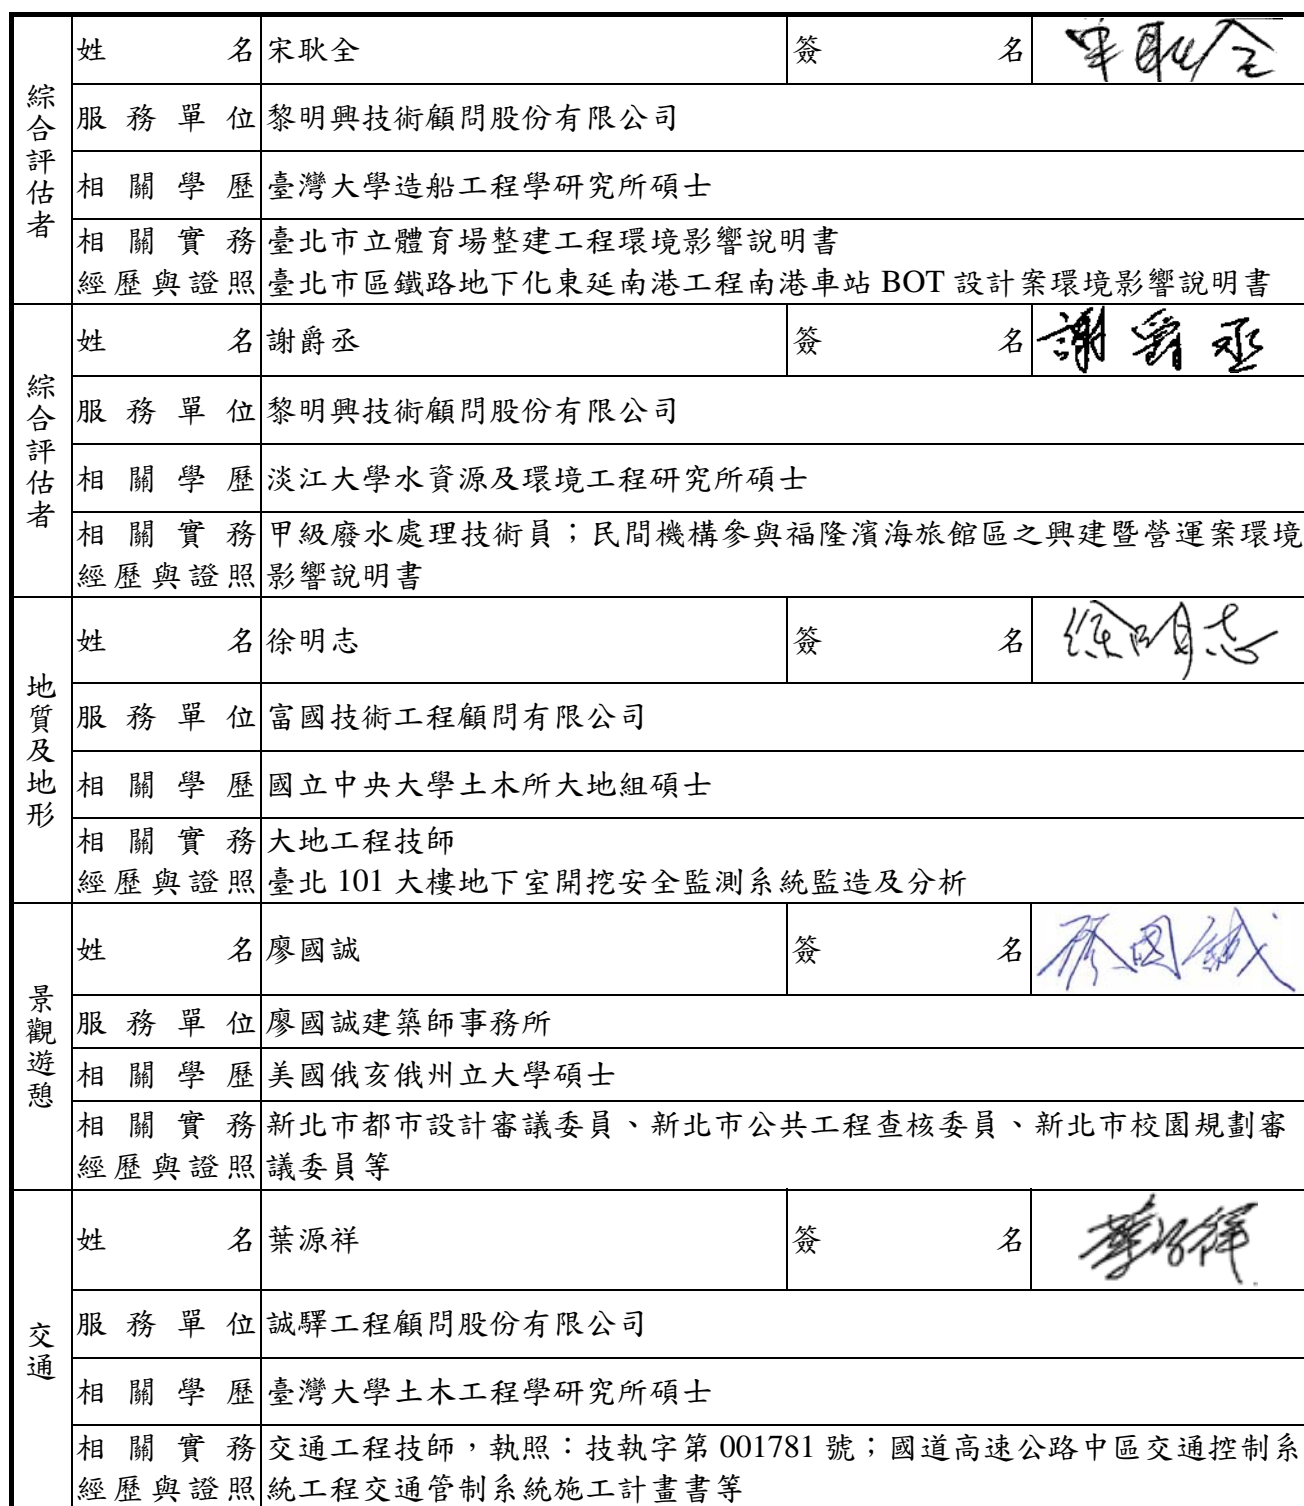 綜合評估者
姓名 宋耿全 簽名 宋耿全
服務單位 黎明興技術顧問股份有限公司
相關學歷 臺灣大學造船工程學研究所碩士
相關實務 臺北市立體育場整建工程環境影響說明書
經歷與證照 臺北市區鐵路地下化東延南港工程南港車站 BOT 設計案環境影響說明書
綜合評估者
姓名 謝爵丞 簽名 謝爵丞
服務單位 黎明興技術顧問股份有限公司
相關學歷 淡江大學水資源及環境工程研究所碩士
相關實務 甲級廢水處理技術員；民間機構參與福隆濱海旅館區之興建暨營運案環境
經歷與證照 影響說明書
地質及地形
姓名 徐明志 簽名 徐明志
服務單位 富國技術工程顧問有限公司
相關學歷 國立中央大學土木所大地組碩士
相關實務 大地工程技師
經歷與證照 臺北 101 大樓地下室開挖安全監測系統監造及分析
景觀遊憩
姓名 廖國誠 簽名 廖國誠
服務單位 廖國誠建築師事務所
相關學歷 美國俄亥俄州立大學碩士
相關實務 新北市都市設計審議委員、新北市公共工程查核委員、新北市校園規劃審
經歷與證照 議委員等
交通
姓名 葉源祥 簽名 葉源祥
服務單位 誠驛工程顧問股份有限公司
相關學歷 臺灣大學土木工程學研究所碩士
相關實務 交通工程技師，執照：技執字第 001781 號；國道高速公路中區交通控制系
經歷與證照 統工程交通管制系統施工計畫書等